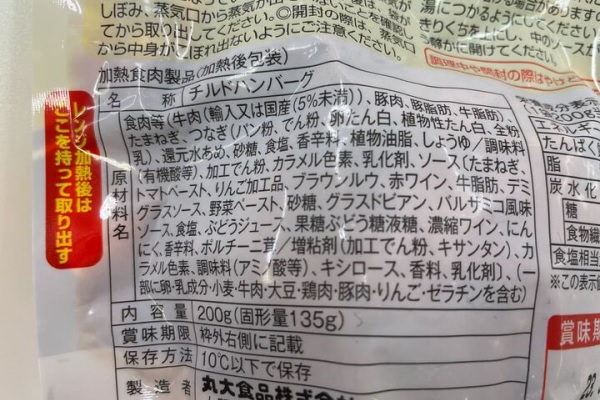 しぼみ、蒸気口から蒸気が
てから取り出してください。◎開封の際は、蒸気口
から中身がこぼれ出ないようにご注意ください。
湯につかるようにしてください。
調理中や開封の際はやけど
加熱食肉製品(加熱後包装)
名 称 チルドハンバーグ
原材料名
食肉等(牛肉(輸入又は国産(5%未満))、豚肉、豚脂肪、牛脂肪)、
たまねぎ、つなぎ(パン粉、でん粉、卵たん白、植物性たん白、全粉
乳)、還元水あめ、砂糖、食塩、香辛料、植物油脂、しょうゆ/調味料
(有機酸等)、加工でん粉、カラメル色素、乳化剤、ソース(たまねぎ、
トマトペースト、りんご加工品、ブラウンルウ、赤ワイン、牛脂肪、デミ
グラスソース、野菜ペースト、砂糖、グラスドビアン、バルサミコ風味
ソース、食塩、ぶどうジュース、果糖ぶどう糖液糖、濃縮ワイン、にん
にく、香辛料、ポルチーニ茸/増粘剤(加工でん粉、キサンタン)、カ
ラメル色素、調味料(アミノ酸等)、キシロース、香料、乳化剤)、(一
部に卵・乳成分・小麦・牛肉・大豆・鶏肉・豚肉・りんご・ゼラチンを含む)
内 容 量 200g(固形量135g)
賞味期限 枠外右側に記載
保存方法 10℃以下で保存
製 造 者 丸大食品株式会社
レンジ加熱後は
ここを持って取り出す
エネルギー
たんぱく
脂
炭水化
糖
食物繊
食塩相当
※この表示値
賞味期